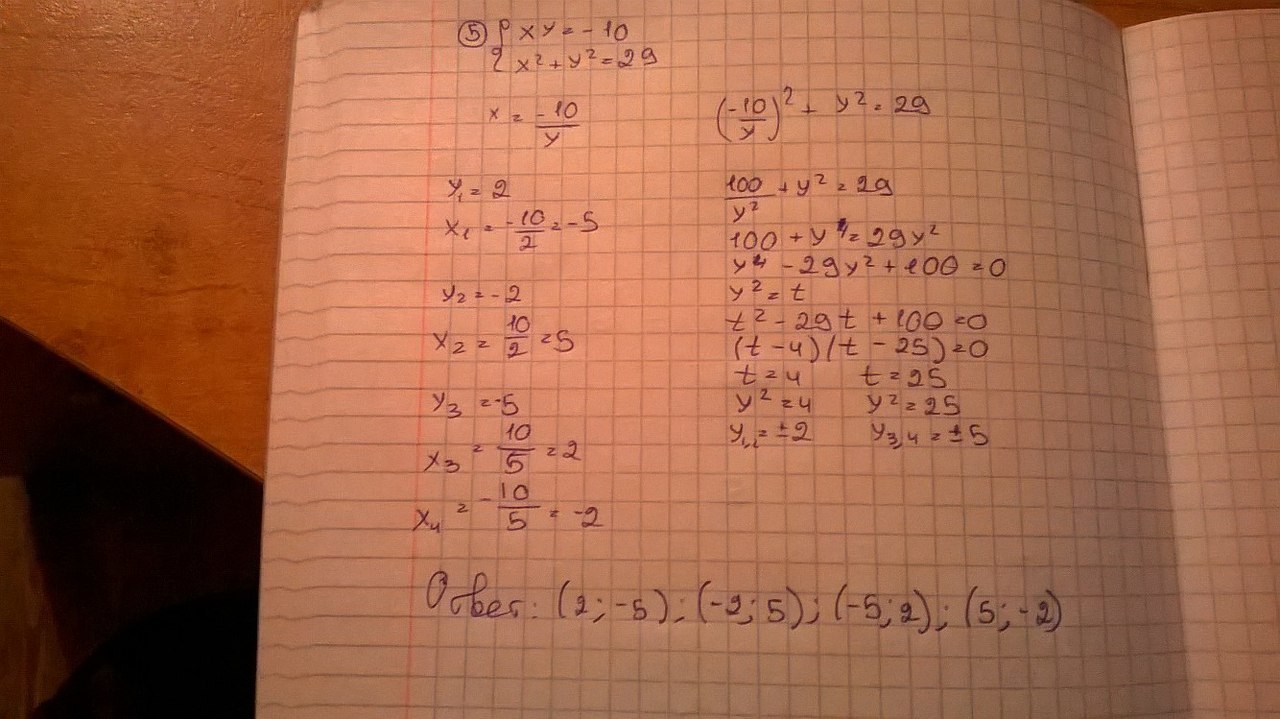 ⑤ { xy = -10
x² + y² = 29
x = -10/y
y₁ = 2
x₁ = -10/2 = -5
y₂ = -2
x₂ = 10/2 = 5
y₃ = -5
x₃ = 10/5 = 2
x₄ = -10/5 = -2
(-10/y)² + y² = 29
100/y² + y² = 29
100 + y⁴ = 29y²
y⁴ - 29y² + 100 = 0
y² = t
t² - 29t + 100 = 0
(t - 4)(t - 25) = 0
t = 4 t = 25
y² = 4 y² = 25
y₁,₂ = ±2 y₃,₄ = ±5
Ответ: (2; -5); (-2; 5); (-5; 2); (5; -2)